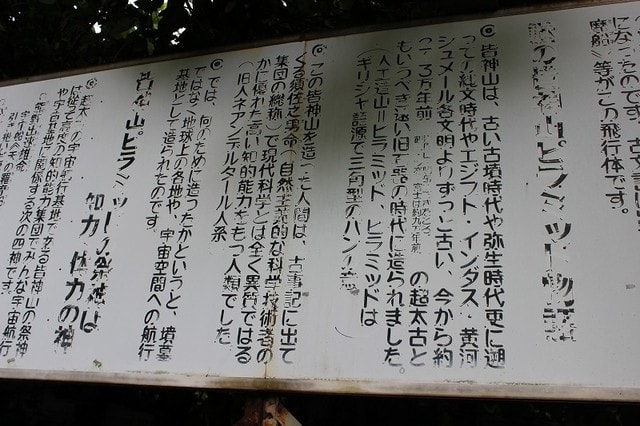 になったのです。
磨船)等がこの飛行体です。
謎の皆神山ピラミッド物語
◎皆神山は、古い古墳時代や弥生時代更に遡
って縄文時代やエジプト・インダス・黄河
シュメール各文明よりずっと古い、今から約
二〜三万年前の超太古と
もいうべき遠い旧石器の時代に造られました。
(人工造山=ピラミッド、ピラミッドは
ギリシャ語源で三角型のパン)の意
◎この皆神山を造った人間は、古事記に出て
くる須佐之男命(自然主義的な科学技術者の
集団の総称)で現代科学とは全く異質ではる
かに優れた高い知的能力をもつ人類でした。
(旧人ネアンデルタール人系)
◎では、何のために造ったかというと、墳墓
ではなく、地球上の各地や、宇宙空間への航行
基地として造られたのです。
皆神山ピラミッドの祭神は
知力、体力の神
◎超太古の宇宙航行基地である皆神山の祭神
は従って高度の知的能力集団でみんな宇宙航行
や宇宙基地に関係する次の四神です。